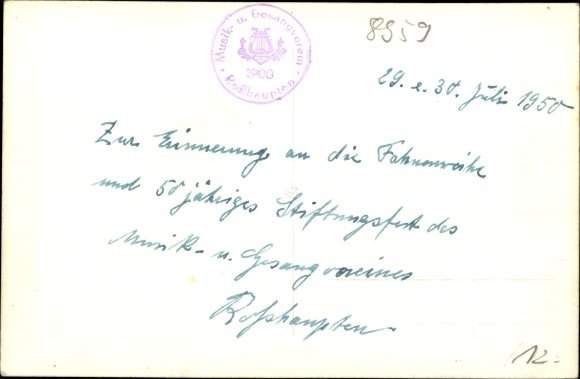 Musik- u. Gesangverein
1900
Roßhaupten
8959
29. e. 30. Juli 1950
Zur Erinnerung an die Fahnenweihe
und 50 jähriges Stiftungsfest des
Musik- u. Gesangvereines
Roßhaupten
12.-